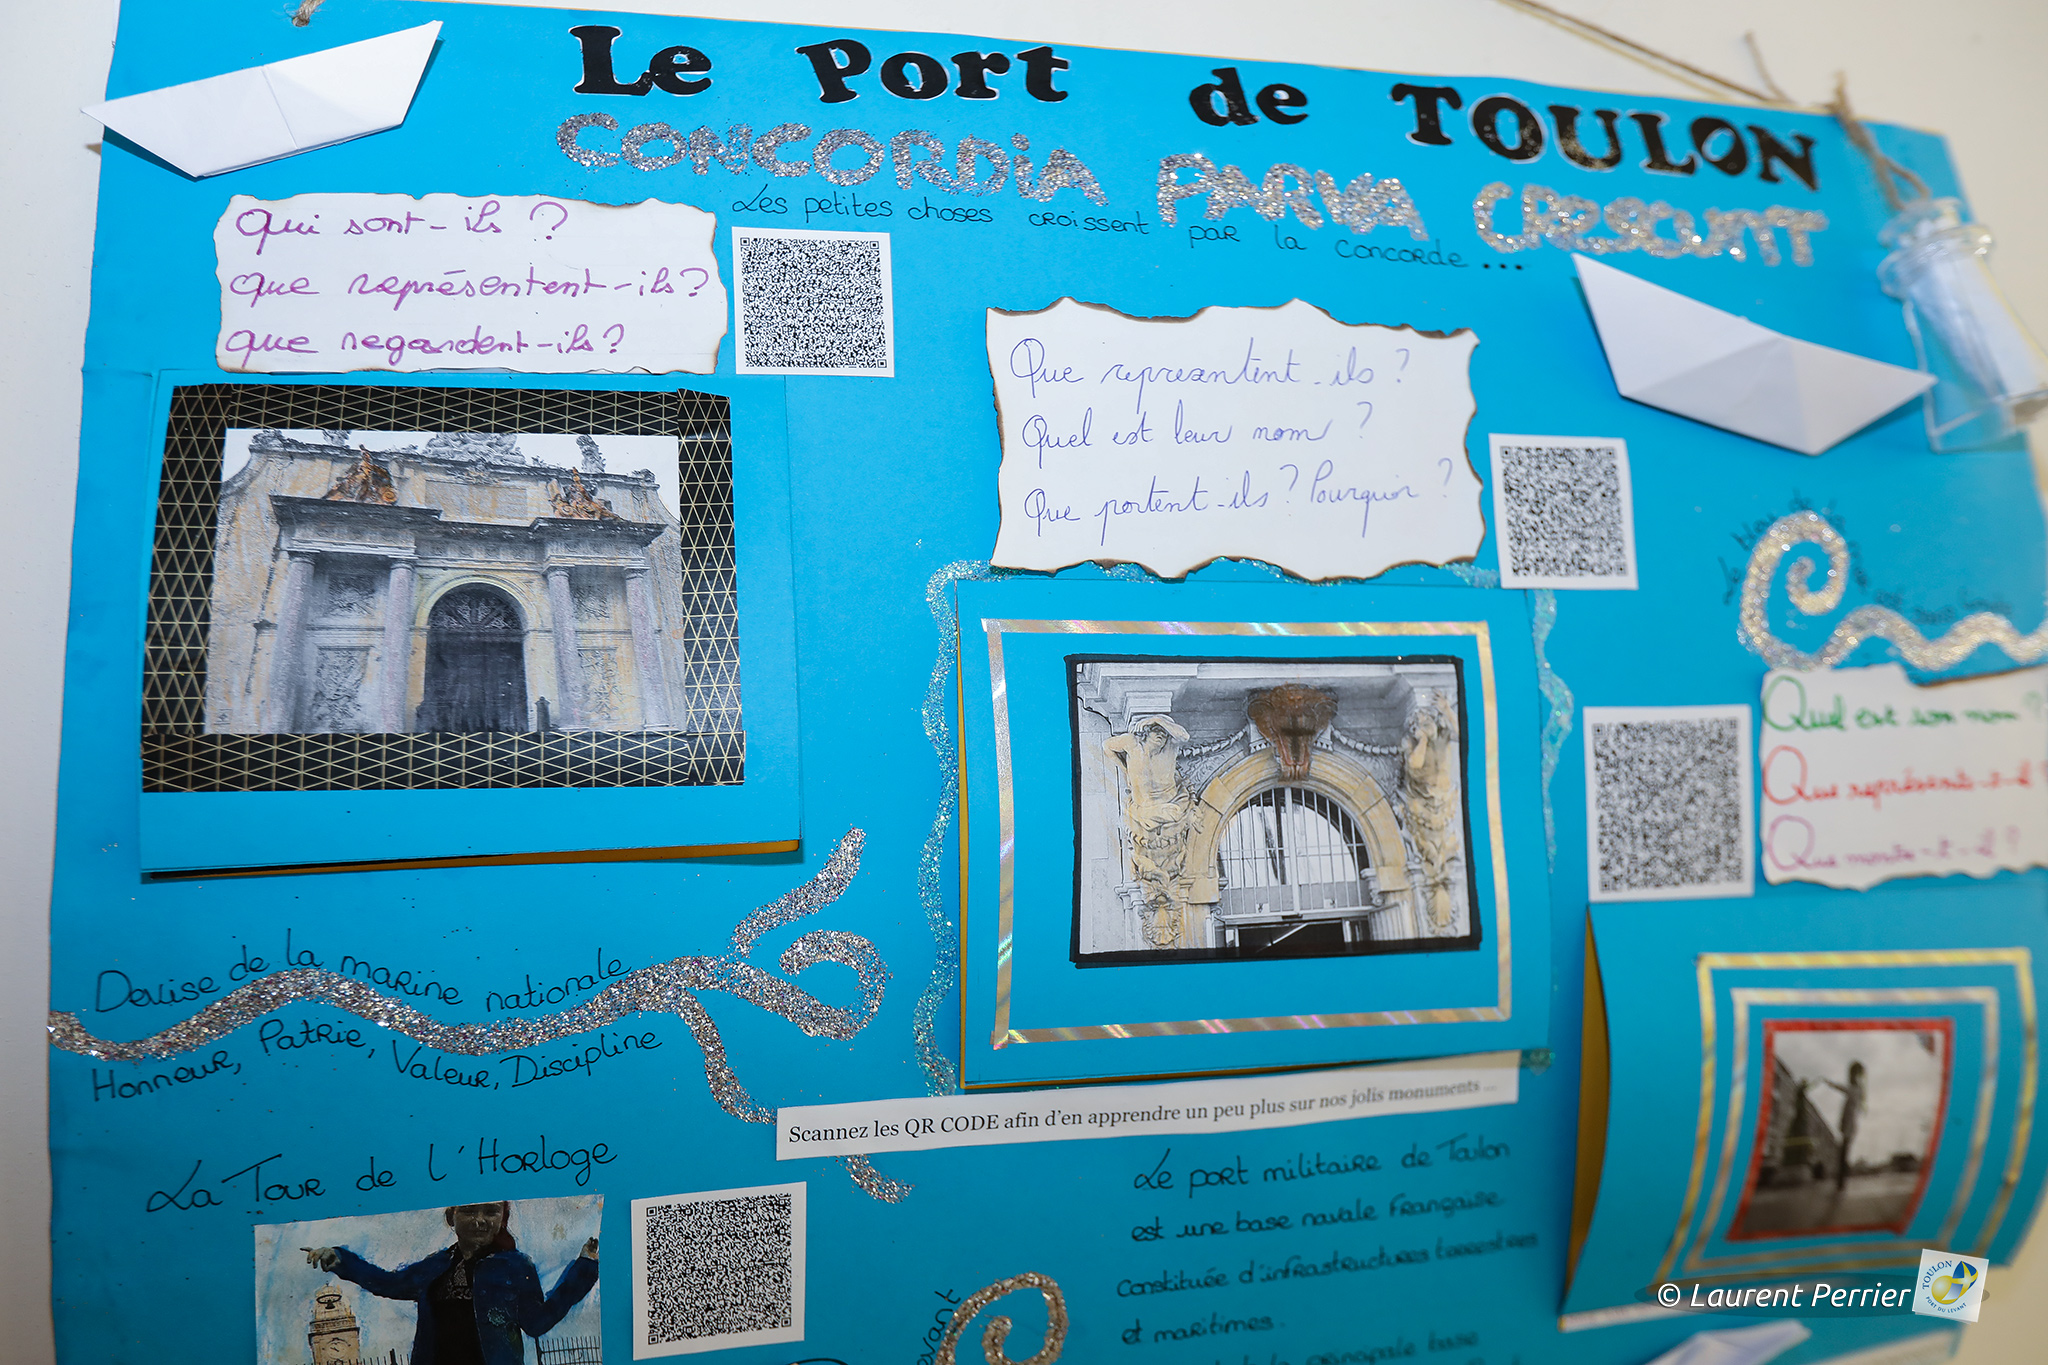 Le Port de TOULON
CONCORDIA PARVA CRESCUNT
Les petites choses croissent par la concorde...
Qui sont-ils ?
que représentent-ils ?
que regardent-ils ?
Que représentent-ils ?
Quel est leur nom ?
Que portent-ils ? Pourquoi ?
Quel est son nom ?
Que représente-t-il
Que montre-t-il ?
Devise de la marine nationale
Honneur, Patrie, Valeur, Discipline
Scannez les QR CODE afin d'en apprendre un peu plus sur nos jolis monuments ...
La Tour de l'Horloge
Le port militaire de Toulon
est une base navale Française
constituée d'infrastructures terrestres
et maritimes.
principale base
© Laurent Perrier
TOULON
PORT DU LEVANT